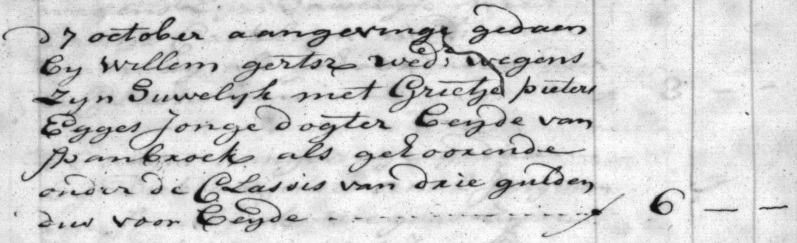 d 7 october aangevinge gedaen
by Willem gertsz wedr, wegens
zyn Huwelyk met Grietje pieters
Egges Jonge dogter beyde van
Ranbroek als gehoorende
onder de Classis van drie gulden
dus voor beyde - - - - - - - - - - - 6 — —